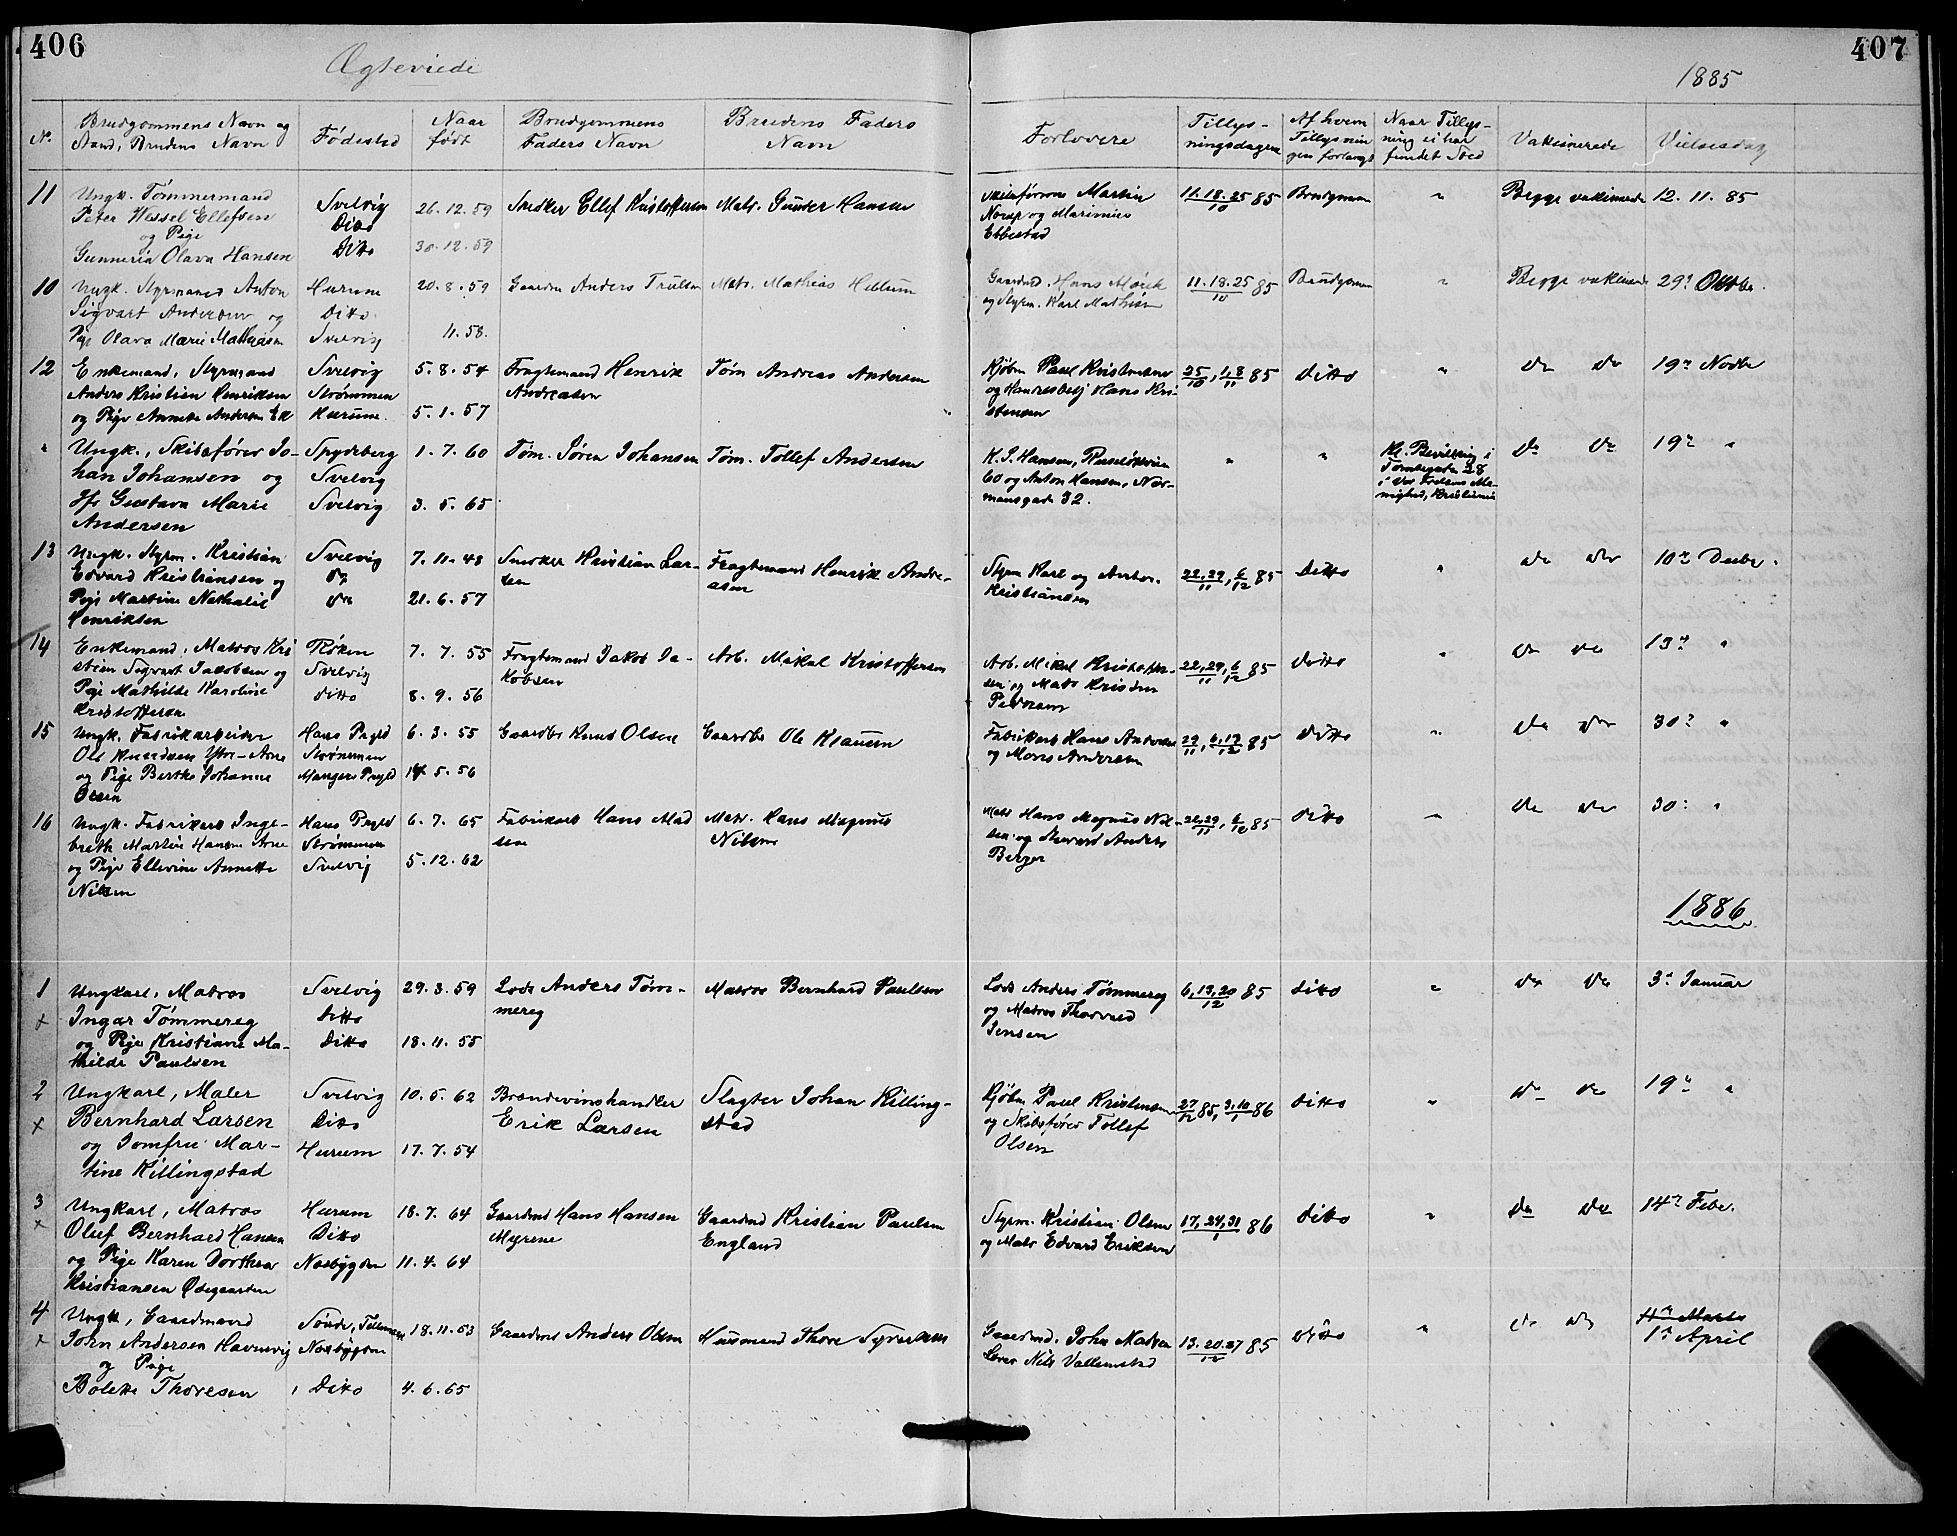 406
407
Ægteviede
1885
No.
Brudgommens Navn og
Stand, Brudens Navn
Fødested
Naar
født
Brudgommens
Faders Navn
Brudens Faders
Navn
Forlovere
Tillys-
ningsdagene
Af hvem
Tillysnin
gen forlangt
Naar Tillys-
ning ei har
fundet Sted
Vakcinerede
Vielsesdag
11
Ungk. Tømmermand
Peter Wessel Ellefsen
og Pige
Gunneria Olava Hansen
Svelvig
Ditto
Ditto
26.12.59
30.12.59
Snedker Ellef Kristoffersen
Matr. Gunder Hansen
Skibsfører Martin
Norup og Marinius
Ebbestad
11.18.25/10 85
Brudgommen
"
Begge vakcinerede
12.11.85
10
Ungk. Styrmand Anton
Sigvart Andersen og
Pige Olava Marie Mathisen
Hurum
Ditto
Svelvig
20.8.59
11.58.
Gaardm Anders Trulsen
Matr. Mathias Hellum
Gaardmd. Hans Mørk
og Styrm. Karl Mathisen
11.18.25/10 85
Brudgommen
"
Begge vakcinerede
29d Oktbr.
12
Enkemand, Styrmand
Anders Kristian Henriksen
og Pige Annette Andersen Ek
Svelvig
Strømmen
Hurum
5.8.54
5.1.57
Fragtemand Henrik
Andreasen
Tøm Andreas Andersen
Kjøbm Paul Kristensen
og Handelsbetj Hans Kri-
stensen
25/10, 1.8/11 85
Ditto
"
Do Do
19de Novbr
"
Ungk., Skibsfører Jo-
han Johansen og
Jfr Gustava Marie
Andersen
Spydeberg
Svelvig
Svelvig
1.7.60
3.5.65
Tøm. Søren Johansen
Tøm. Tollef Andersen
K. S. Hansen, Ruseløkveien
60 og Anton Hansen, Nor-
mansgade 32.
"
"
Kl. Bevilling i
28
i Vor Frelsers Me-
nighed, Kristiania
Do Do
19de "
13
Ungk. Styrm. Kristian
Edvard Kristiansen og
Pige Martine Nathalie
Henriksen
Svelvig
Do
Do
7.11.48
21.6.57
Snedker Kristian Lar-
sen
Fragtemand Henrik Andre-
asen
Styrm Karl og Anton
Kristiansen
22,29/11, 6/12 85
Ditto
"
Do Do
10de Decbr.
14
Enkemand, Matros Kri
stian Sigvart Jakobsen og
Pige Mathilde Karoline
Kristoffersen
Røken
Svelvig
Ditto
7.7.55
8.9.56
Fragtemand Jakob Ja-
kobsen
Arb. Mikal Kristoffersen
Arb. Mikal Kristoffer-
sen og Matr Kristian
Pedersen
22,29/11, 6/12 85
Ditto
"
Do Do
13de "
15
Ungk. Fabrikarbeider
Ole Knudsen Ytre-Arne
og Pige Berthe Johanne
Olsen
Hans Prgld
Strømmen
Mangers Prgld
6.3.55
14.5.56
Gaardbr Knud Olsen
Gaardbr Ole Klausen
Fabrikarb Hans Andersen
og Mons Andersen
29/11, 6,13/12 85
Ditto
"
Do Do
30d "
16
Ungk. Fabrikarb Inge-
breth Martin Hansen Arne
og Pige Ellevine Annette
Nilsen
Hans Prgld
Strømmen
Svelvig
6.7.65
5.12.62
Fabrikarb Hans Mad
sen
Matr. Hans Magnus
Nilsen
Matr Hans Magnus Nil-
sen og Anders
Berger
22,29/11, 6/12 85
Ditto
"
Do Do
30d "
1886
1
x
Ungkarl, Matros
Ingar Tømmereg
og Pige Kristiane Ma-
thilde Paulsen
Svelvig
Ditto
Ditto
29.3.59
18.11.55
Lods Anders Tøm-
mereg
Matros Bernhard Paulsen
Lods Anders Tømmereg
og Matros Thorvald
Jensen
6,13,20/12 85
Ditto
"
Do Do
3d Januar
2
x
Ungkarl, Maler
Bernhard Larsen
og Jomfru Mar-
tine Killingstad
Svelvig
Ditto
Hurum
10.5.62
17.7.54
Brændevinshandler
Erik Larsen
Slagter Johan Killing-
stad
Kjøbm Paul Kristensen
og Skibsfører Tollef
Olsen
27/12 85, 3,10/1 86
Ditto
"
Do Do
19de "
3
x
Ungkarl, Matros
Oluf Bernhard Hansen
og Pige Karen Dorthea
Kristiansen Ødegaarden
Hurum
Ditto
Nesbygden
18.7.64
11.4.64
Gaardmd Hans Hansen
Myrene
Gaardmd Kristian Paulsen
England
Styrm. Kristian Olsen
og Matr Edvard Eriksen
17,24,31/1 86
Ditto
"
Do Do
14de Febr.
4
x
Ungk, Gaardmand
John Andersen Havnevig
og Pige
Bolette Thoresen
Sønde, Tellemarken
Nesbygden
Ditto
18.11.53
4.6.65
Gaardmd Anders Olsen
Husmand Thore Syversen
Gaardmd. John Madsen
Lerer Nils Vallemstad
13.20.27/12 85
Ditto
"
Do Do
11te Marts
1ste April